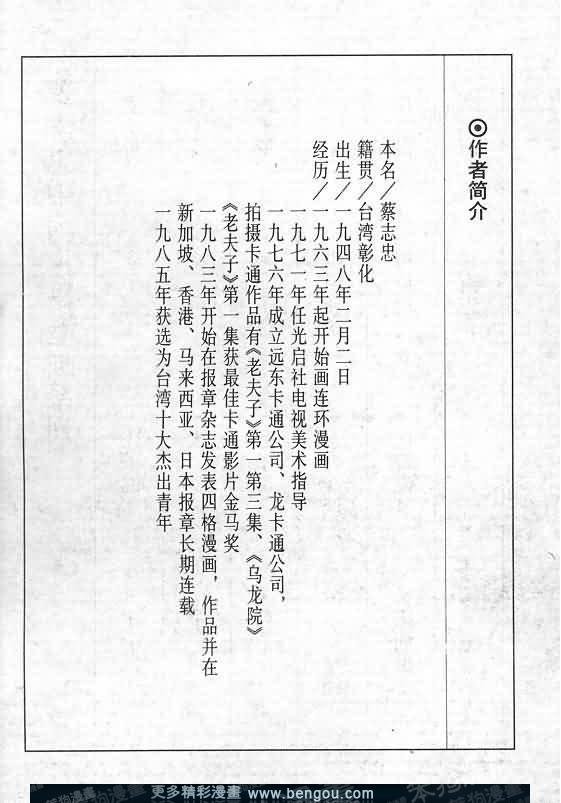 ⊙作者简介
本名／蔡志忠
籍贯／台湾彰化
出生／一九四八年二月二日
经历／一九六三年起开始画连环漫画
一九七一年任光启社电视美术指导
一九七六年成立远东卡通公司、龙卡通公司，
拍摄卡通作品有《老夫子》第一第三集、《乌龙院》
《老夫子》第一集获最佳卡通影片金马奖
一九八三年开始在报章杂志发表四格漫画，作品并在
新加坡、香港、马来西亚、日本报章长期连载
一九八五年获选为台湾十大杰出青年
更多精彩漫畫 www.bengou.com